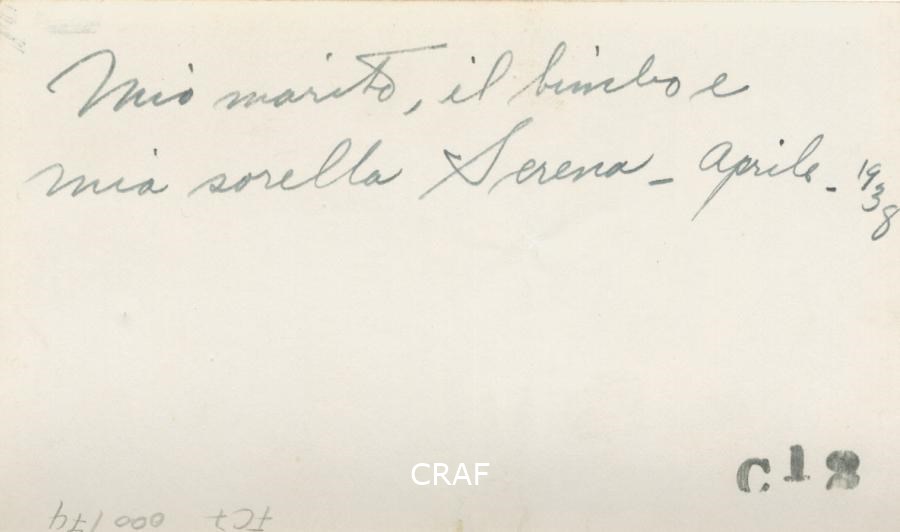 Mio marito, il bimbo e
mia sorella Serena - Aprile - 1938
CRAF
C18